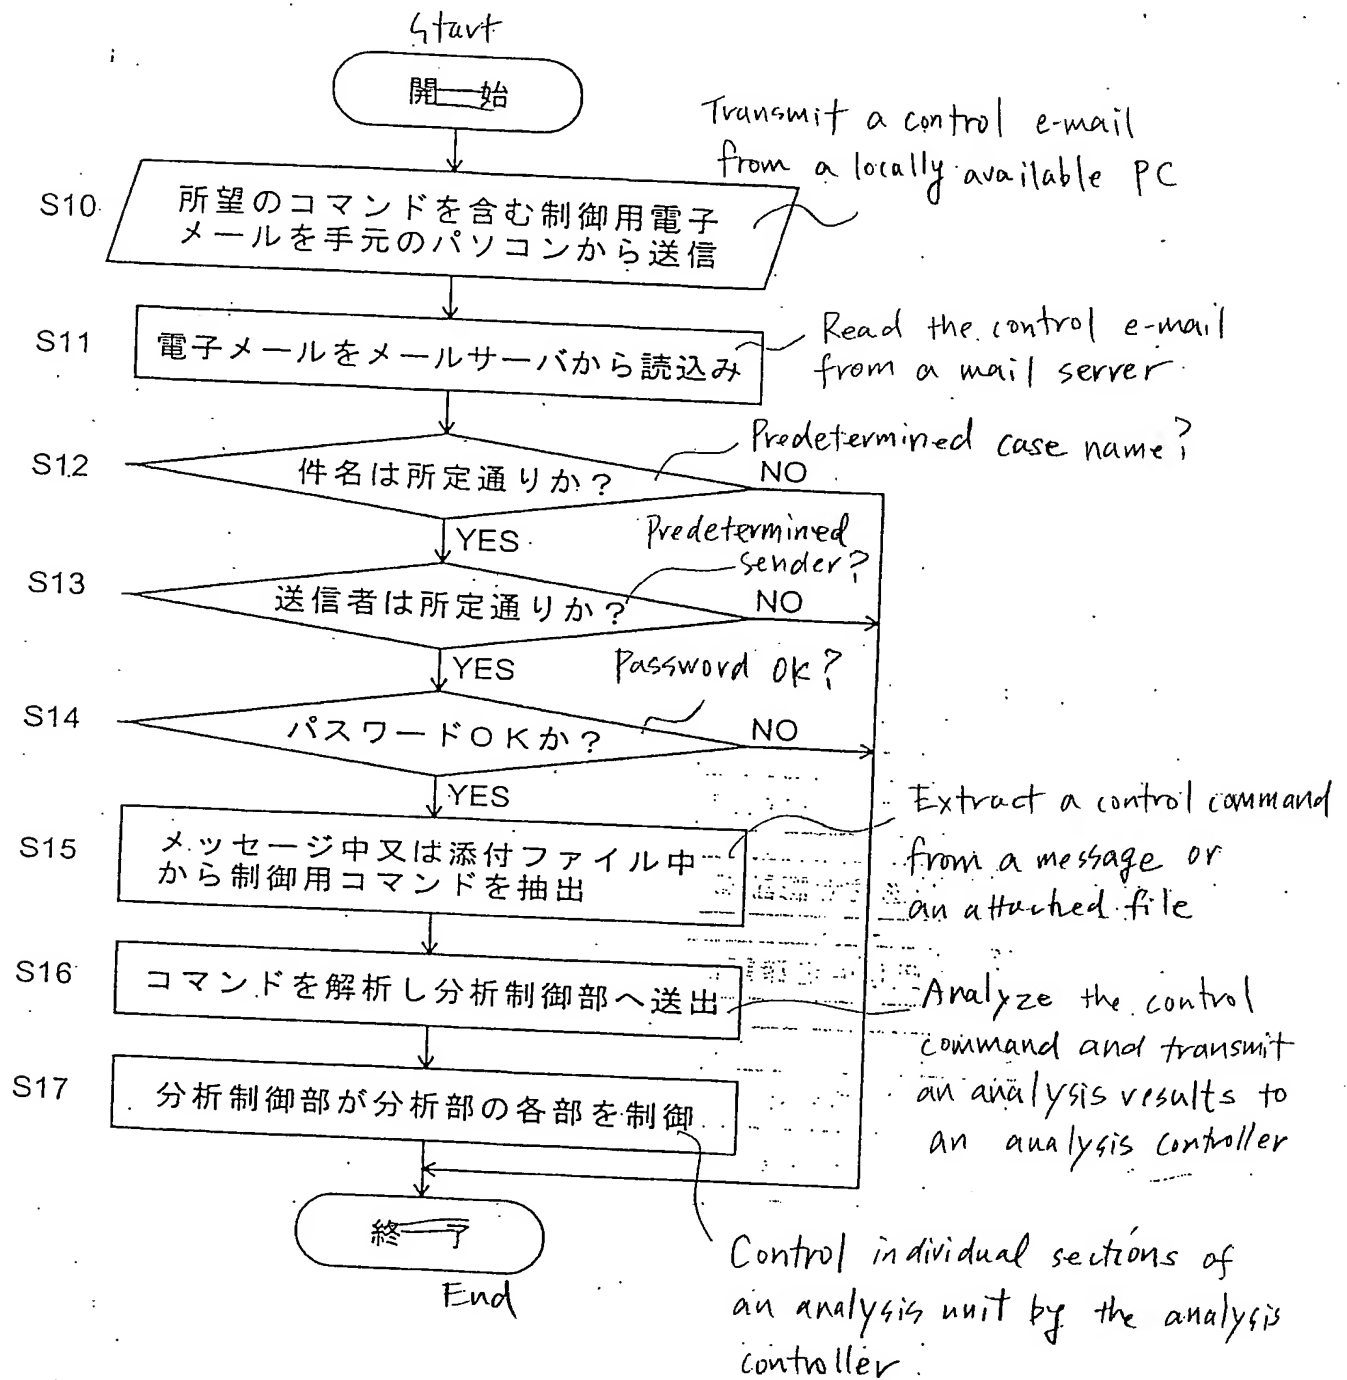 Start
開始
Transmit a control e-mail
from a locally available PC
S10
所望のコマンドを含む制御用電子
メールを手元のパソコンから送信
S11
電子メールをメールサーバから読込み
Read the control e-mail
from a mail server
S12
件名は所定通りか?
Predetermined case name?
NO
YES
S13
送信者は所定通りか?
Predetermined
sender?
NO
YES
S14
パスワードOKか?
Password OK?
NO
YES
S15
メッセージ中又は添付ファイル中
から制御用コマンドを抽出
Extract a control command
from a message or
an attached file
S16
コマンドを解析し分析制御部へ送出
Analyze the control
command and transmit
an analysis results to
an analysis controller
S17
分析制御部が分析部の各部を制御
Control individual sections of
an analysis unit by the analysis
controller.
終了
End